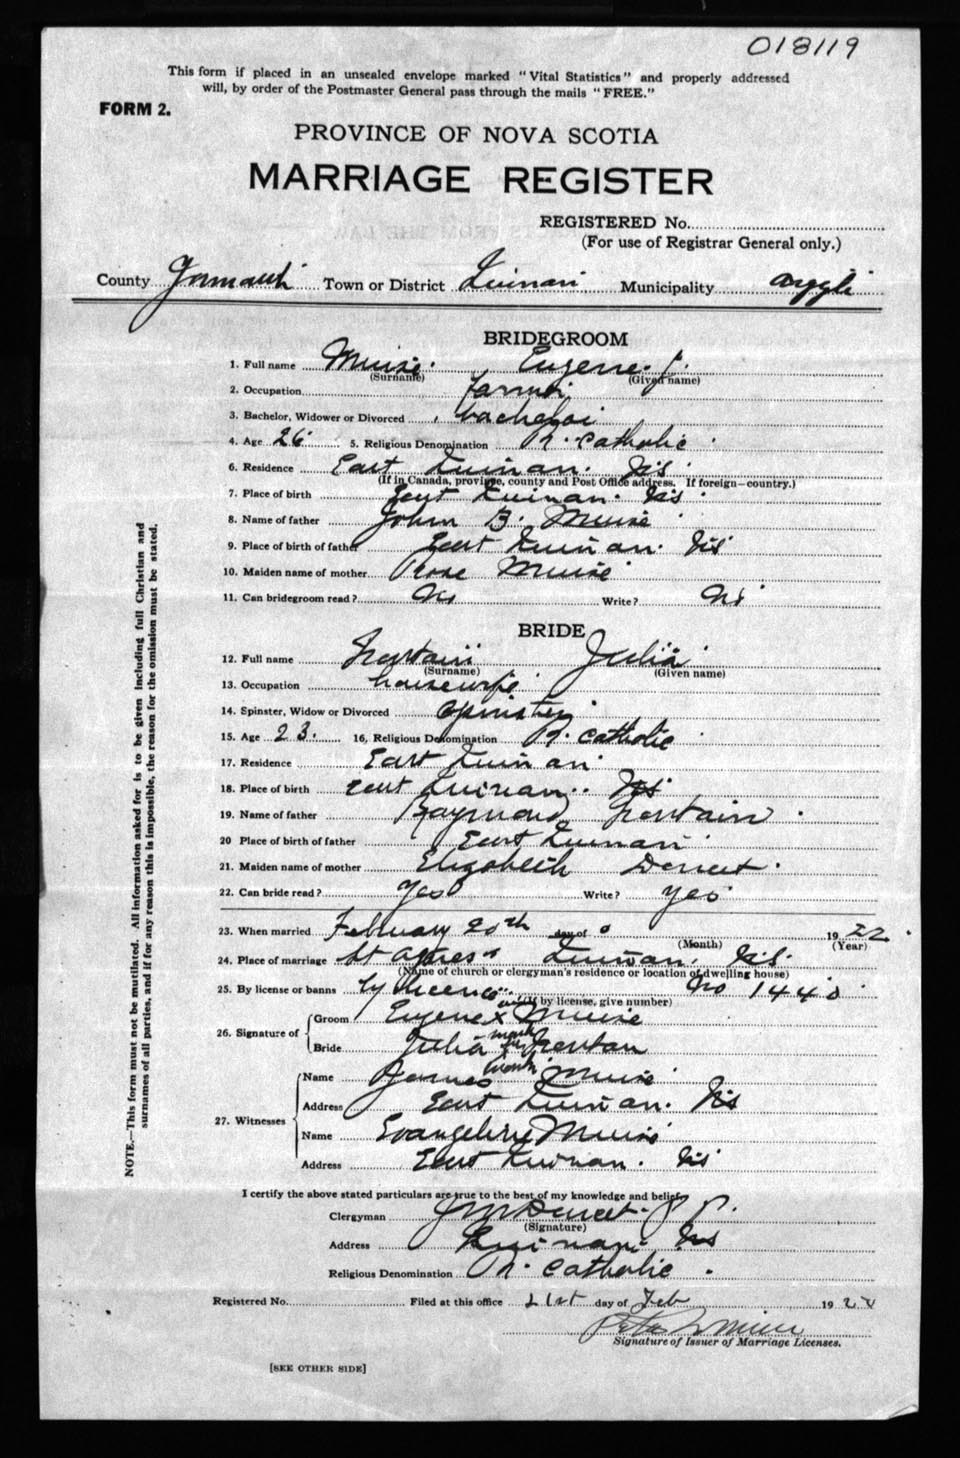 018119
This form if placed in an unsealed envelope marked "Vital Statistics" and properly addressed
will, by order of the Postmaster General pass through the mails "FREE."
FORM 2.
PROVINCE OF NOVA SCOTIA
MARRIAGE REGISTER
REGISTERED No.
(For use of Registrar General only.)
County Yarmouth Town or District Quinan Municipality Argyle
BRIDEGROOM
1. Full name Muise Eugene J.
(Surname) (Given name)
2. Occupation farmer
3. Bachelor, Widower or Divorced bachelor
4. Age 26 5. Religious Denomination R. Catholic
6. Residence East Quinan. N.S.
(If in Canada, province, county and Post Office address. If foreign—country.)
7. Place of birth East Quinan. N.S.
8. Name of father John B. Muise
9. Place of birth of father East Quinan. N.S.
10. Maiden name of mother Rose Muise
11. Can bridegroom read? No Write? No
BRIDE
12. Full name Julia
(Surname) (Given name)
13. Occupation housewife
14. Spinster, Widow or Divorced Spinster
15. Age 23. 16, Religious Denomination R. Catholic
17. Residence East Quinan
18. Place of birth East Quinan. N.S.
19. Name of father Raymond
20 Place of birth of father East Quinan
21. Maiden name of mother Elizabeth Doucet.
22. Can bride read? Yes Write? Yes
23. When married February 20th day of 1922.
(Month) (Year)
24. Place of marriage St Agnes Quinan. N.S.
(Name of church or clergyman's residence or location of dwelling house)
25. By license or banns by licence No 1440
(If by license, give number)
26. Signature of Groom Eugene X Muise
mark
Bride Julia
27. Witnesses
Name James Muise
Address East Quinan. N.S.
Name Evangeline Muise
Address East Quinan. N.S.
I certify the above stated particulars are true to the best of my knowledge and belief.
Clergyman Doucet P. P.
(Signature)
Address Quinan N.S.
Religious Denomination R. Catholic
Registered No. Filed at this office 21st day of Feb 1922
Signature of Issuer of Marriage Licenses.
[SEE OTHER SIDE]
NOTE.—This form must not be mutilated. All information asked for is to be given including full Christian and
surnames of all parties, and if for any reason this is impossible, the reason for the omission must be stated.